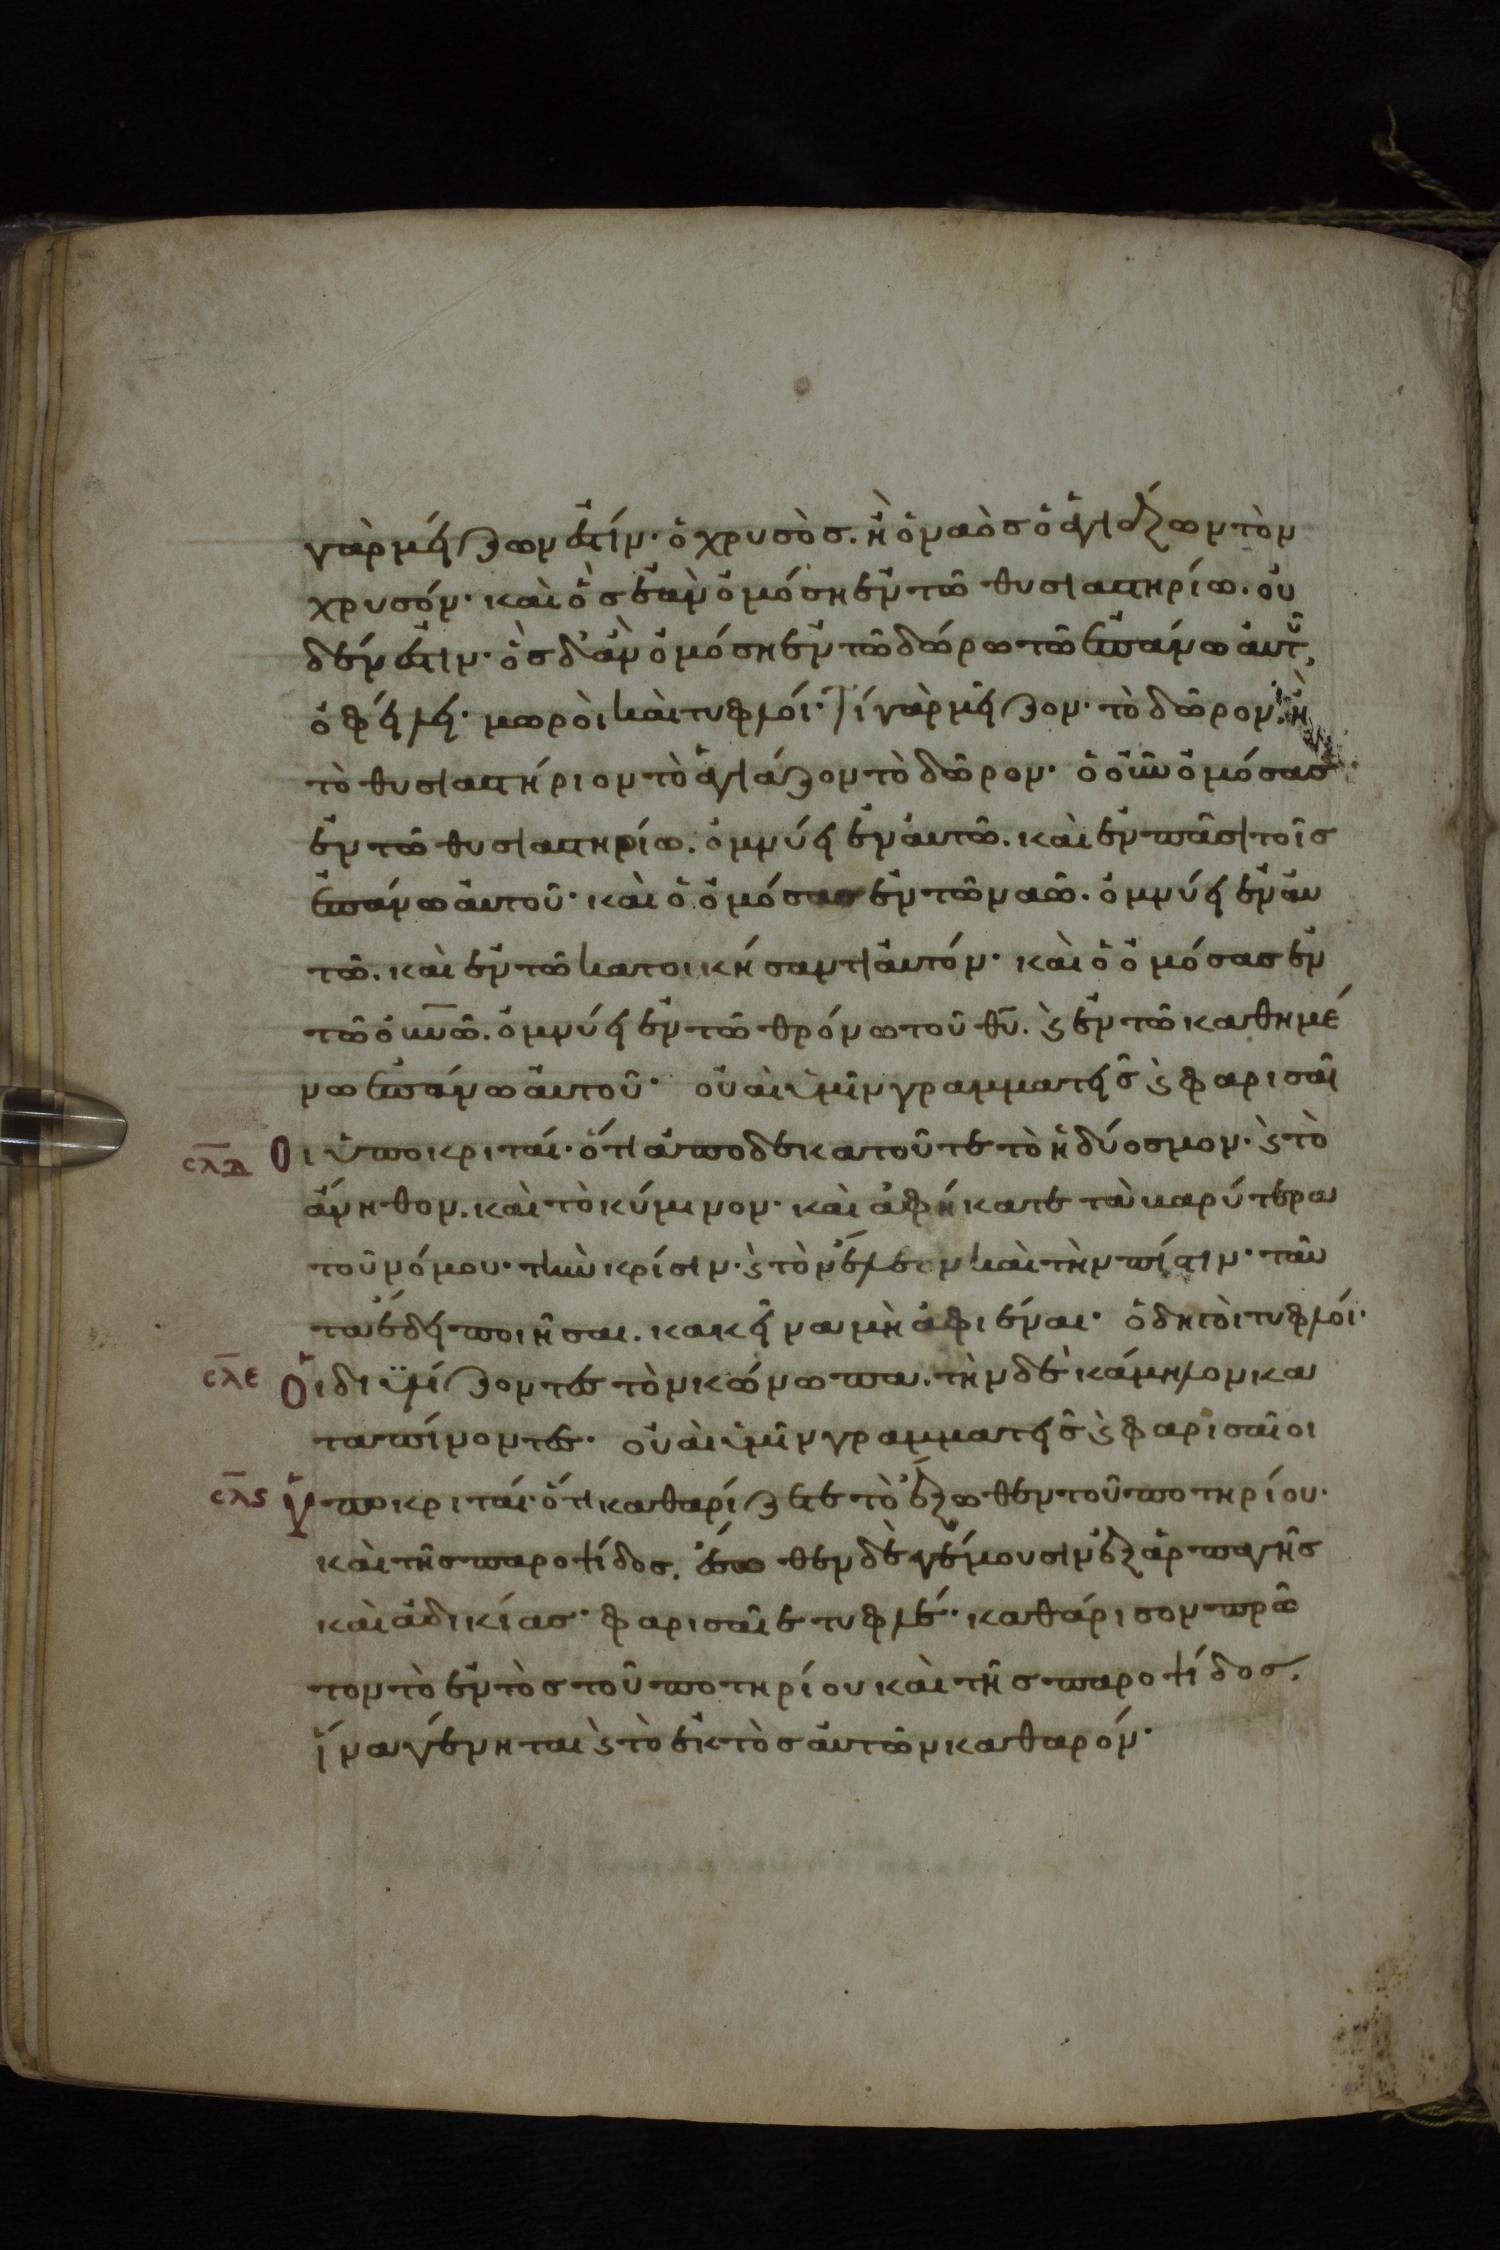 γὰρ μείζων ἐστίν· ὁ χρυσὸσ. ἢ ὁ ναὸσ ὁ ἁγιάζων τὸν
χρυσόν· καὶ ὃσ ἐὰν ὀμόση ἐν τῶ θυσιαστηρίω. οὐ
δέν ἐστιν· ὃσ δ' ἂν ὀμόση ἐν τῶ δώρω τῶ ἐπάνω αὐτοῦ,
ὀφείλει· μωροὶ καὶ τυφλοί· Τί γὰρ μεῖζον· τὸ δῶρον. ἢ
τὸ θυσιαστήριον τὸ ἁγιάζον τὸ δῶρον· ὁ οὖν ὀμόσασ
ἐν τῶ θυσιαστηρίω. ὀμνύει ἐν αὐτῶ. καὶ ἐν πᾶσι τοῖσ
ἐπάνω αὐτοῦ· καὶ ὁ ὀμόσασ ἐν τῶ ναῶ. ὀμνύει ἐν αὐ
τῶ. καὶ ἐν τῶ κατοικήσαντι αὐτόν· καὶ ὁ ὀμόσασ ἐν
τῶ οὐνῶ. ὀμνύει ἐν τῶ θρόνω τοῦ θυ. ϗ ἐν τῶ καθημέ
νω ἐπάνω αὐτοῦ· οὐαὶ ὑμῖν γραμματεῖσ ϗ φαρισαῖ
σλδ Οι ὑποκριταί· ὅτι ἀποδεκατοῦτε τὸ ἡδύοσμον· ϗ τὸ
ἄνηθον. καὶ τὸ κύμινον· καὶ ἀφήκατε τὰ βαρύτερα
τοῦ νόμου· τὴν κρίσιν· ϗ τὸν ἔλεον καὶ τὴν πίστιν· ταῦ
τα ἔδει ποιῆσαι. κακεῖνα μὴ ἀφιέναι· ὁδηγοὶ τυφλοί·
σλε Οἱ διϋλίζοντεσ τὸν κώνωπα. τὴν δὲ κάμηλον κα
ταπίνοντεσ· οὐαὶ ὑμῖν γραμματεῖσ ϗ φαρισαῖοι
σλϛ Ὑποκριταί· ὅτι καθαρίζετε τὸ ἔξωθεν τοῦ ποτηρίου·
καὶ τῆσ παροψίδοσ. ἔσωθεν δὲ γέμουσιν ἐξ ἁρπαγῆσ
καὶ ἀδικίασ· φαρισαῖε τυφλέ· καθάρισον πρῶ
τον τὸ ἐντὸσ τοῦ ποτηρίου καὶ τῆσ παροψίδοσ.
ἵνα γένηται ϗ τὸ ἐκτὸσ αὐτῶν καθαρόν·